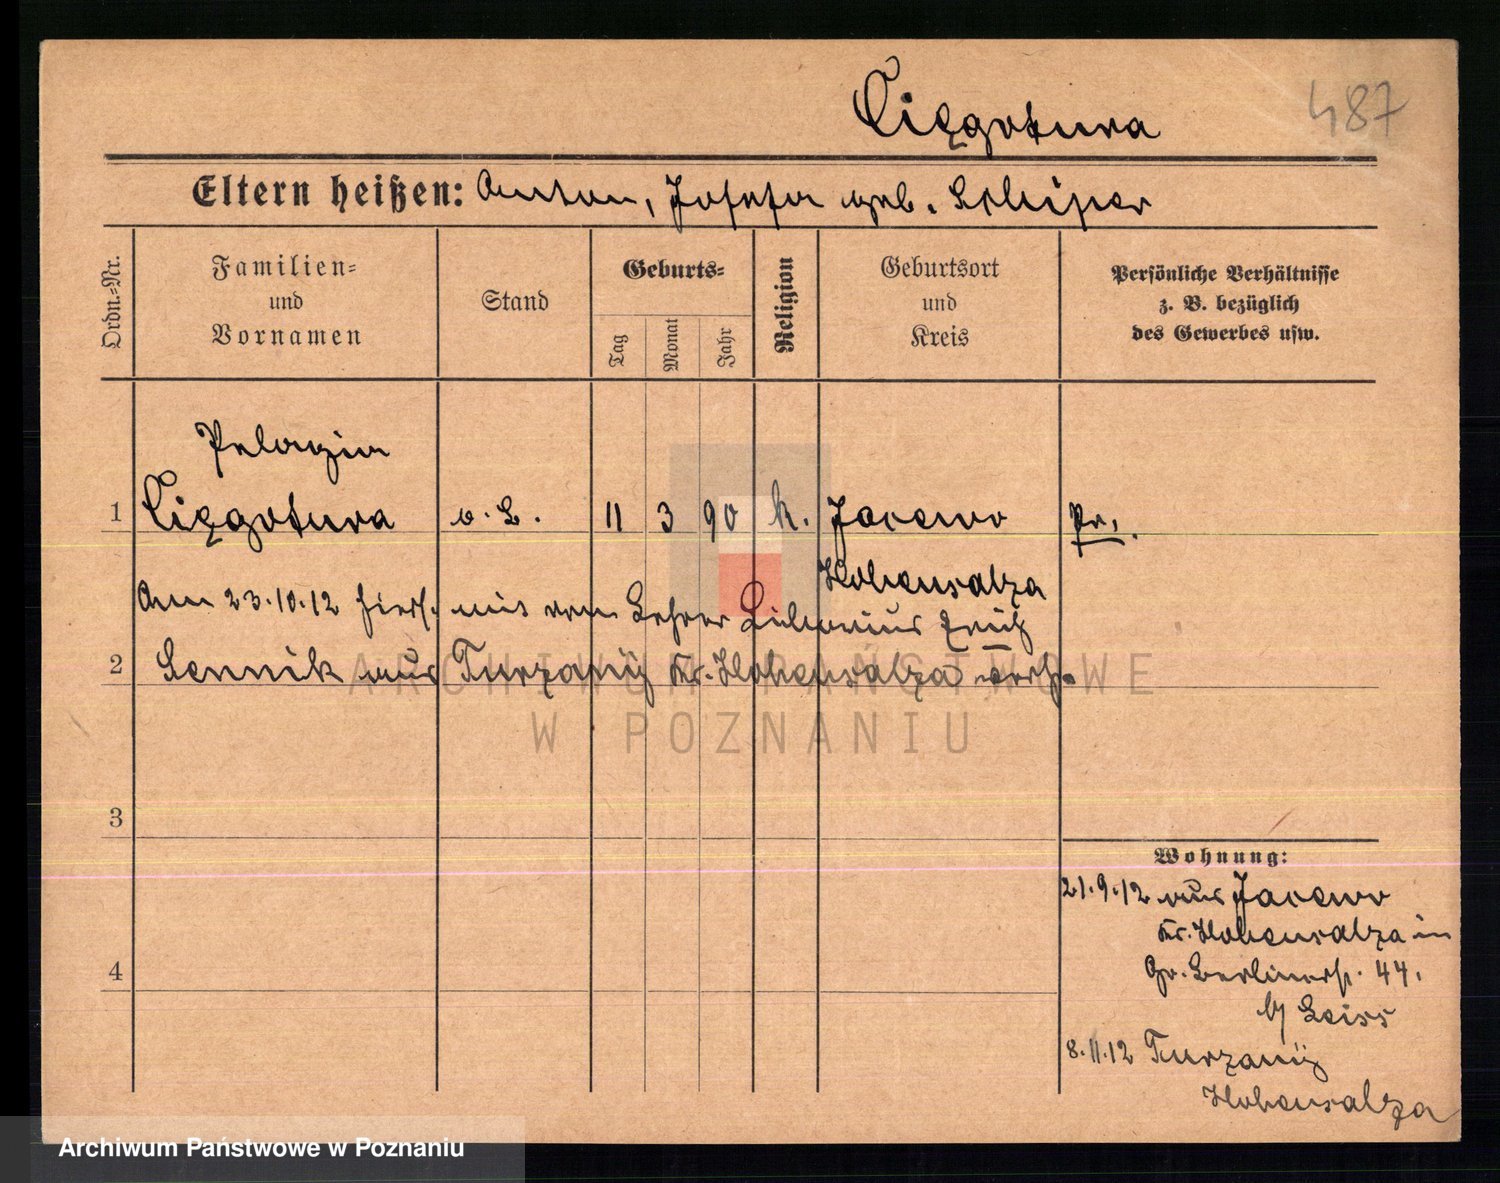 Ciężgotura
487
Eltern heißen: Anton, Josefa geb.
Ordn.-Nr.
Familien-
und
Vornamen
Stand
Geburts-
Tag
Monat
Jahr
Religion
Geburtsort
und
Kreis
Persönliche Verhältnisse
z. B. bezüglich
des Gewerbes usw.
Pelagia
1 o. B. 11 3 90 k. Jacewo Pr.
Hohensalza
Am 23.10.12 hiers. mit dem Lehrer
2 aus Turzany Kr. Hohensalza
ARCHIWUM PAŃSTWOWE
W POZNANIU
3
4
Wohnung:
21.9.12 aus Jacewo
Kr. Hohensalza in
Gr. Berlinerstr. 44.
b/ Leiss
8.11.12 Turzany
Hohensalza
Archiwum Państwowe w Poznaniu